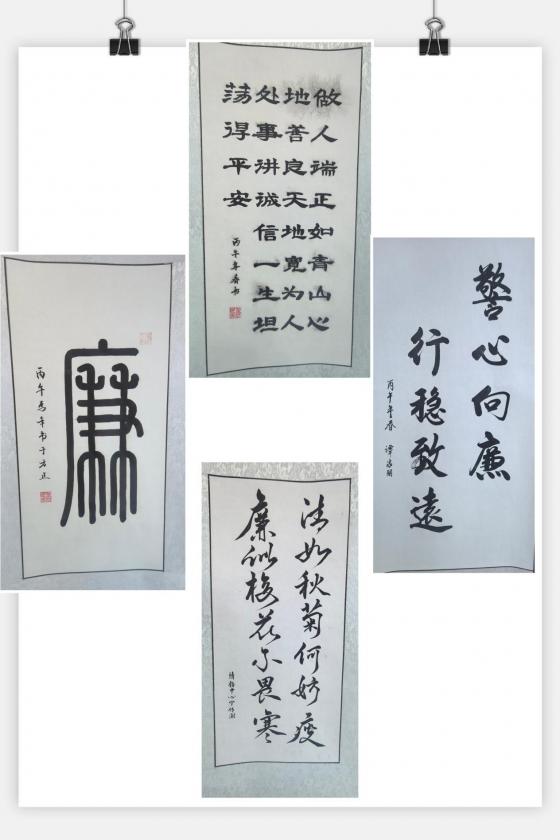 做人端正如青山心
地善良天地宽为人
处事讲诚信一生坦
荡得平安
丙午年春书
廉
丙午马年书于方正
警心向廉
行稳致遠
丙午年春
清如秋菊何妨瘦
廉似梅花不畏寒